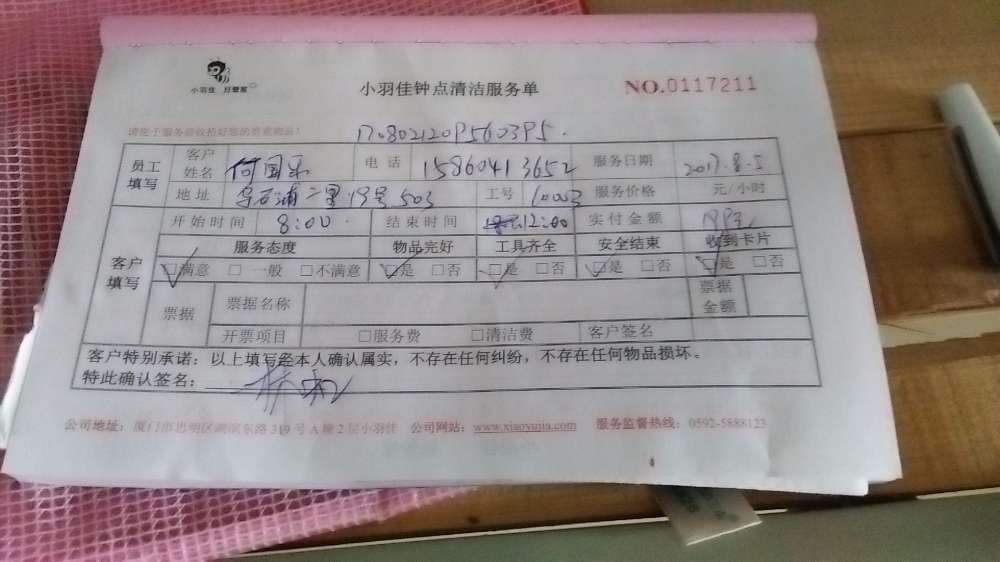 小羽佳 月嫂家
小羽佳钟点清洁服务单
NO.0117211
请您于服务前收拾好您的贵重物品!
员工填写 客户姓名 何国乐 电话 15860413652 服务日期 2017.8.5
地址 乌石浦二里19号503 工号 10053 服务价格 元/小时
客户填写 开始时间 8:00 结束时间 12:00 实付金额
服务态度 物品完好 工具齐全 安全结束 收到卡片
☑满意 □一般 □不满意 ☑是 □否 ☑是 □否 ☑是 □否 ☑是 □否
票据 票据名称 票据金额
开票项目 □服务费 □清洁费 客户签名
客户特别承诺:以上填写经本人确认属实,不存在任何纠纷,不存在任何物品损坏。
特此确认签名:
公司地址:厦门市思明区湖滨东路319号A幢2层小羽佳 公司网站:www.xiaoyujia.com 服务监督热线:0592-5888123